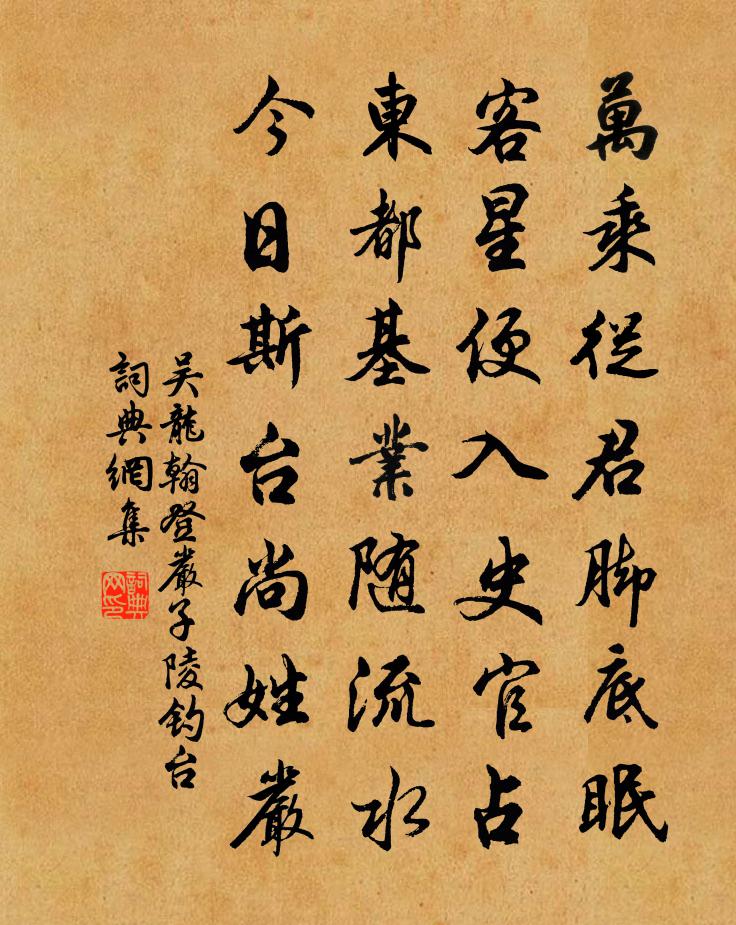 萬乘從君脚底眠
客星便入史官占
東都基業随流水
今日斯台尚姓嚴
吴龍翰登嚴子陵钓台
詞典網集
詞典网印